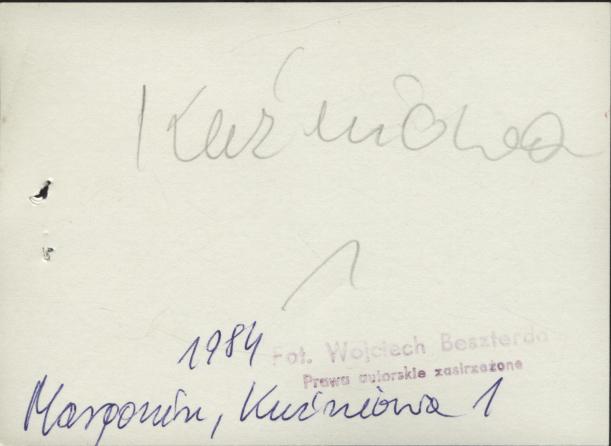 Kuźniowa
1
1984
Fot. Wojciech Beszterda
Prawa autorskie zastrzeżone
Margonin, Kuźniowa 1